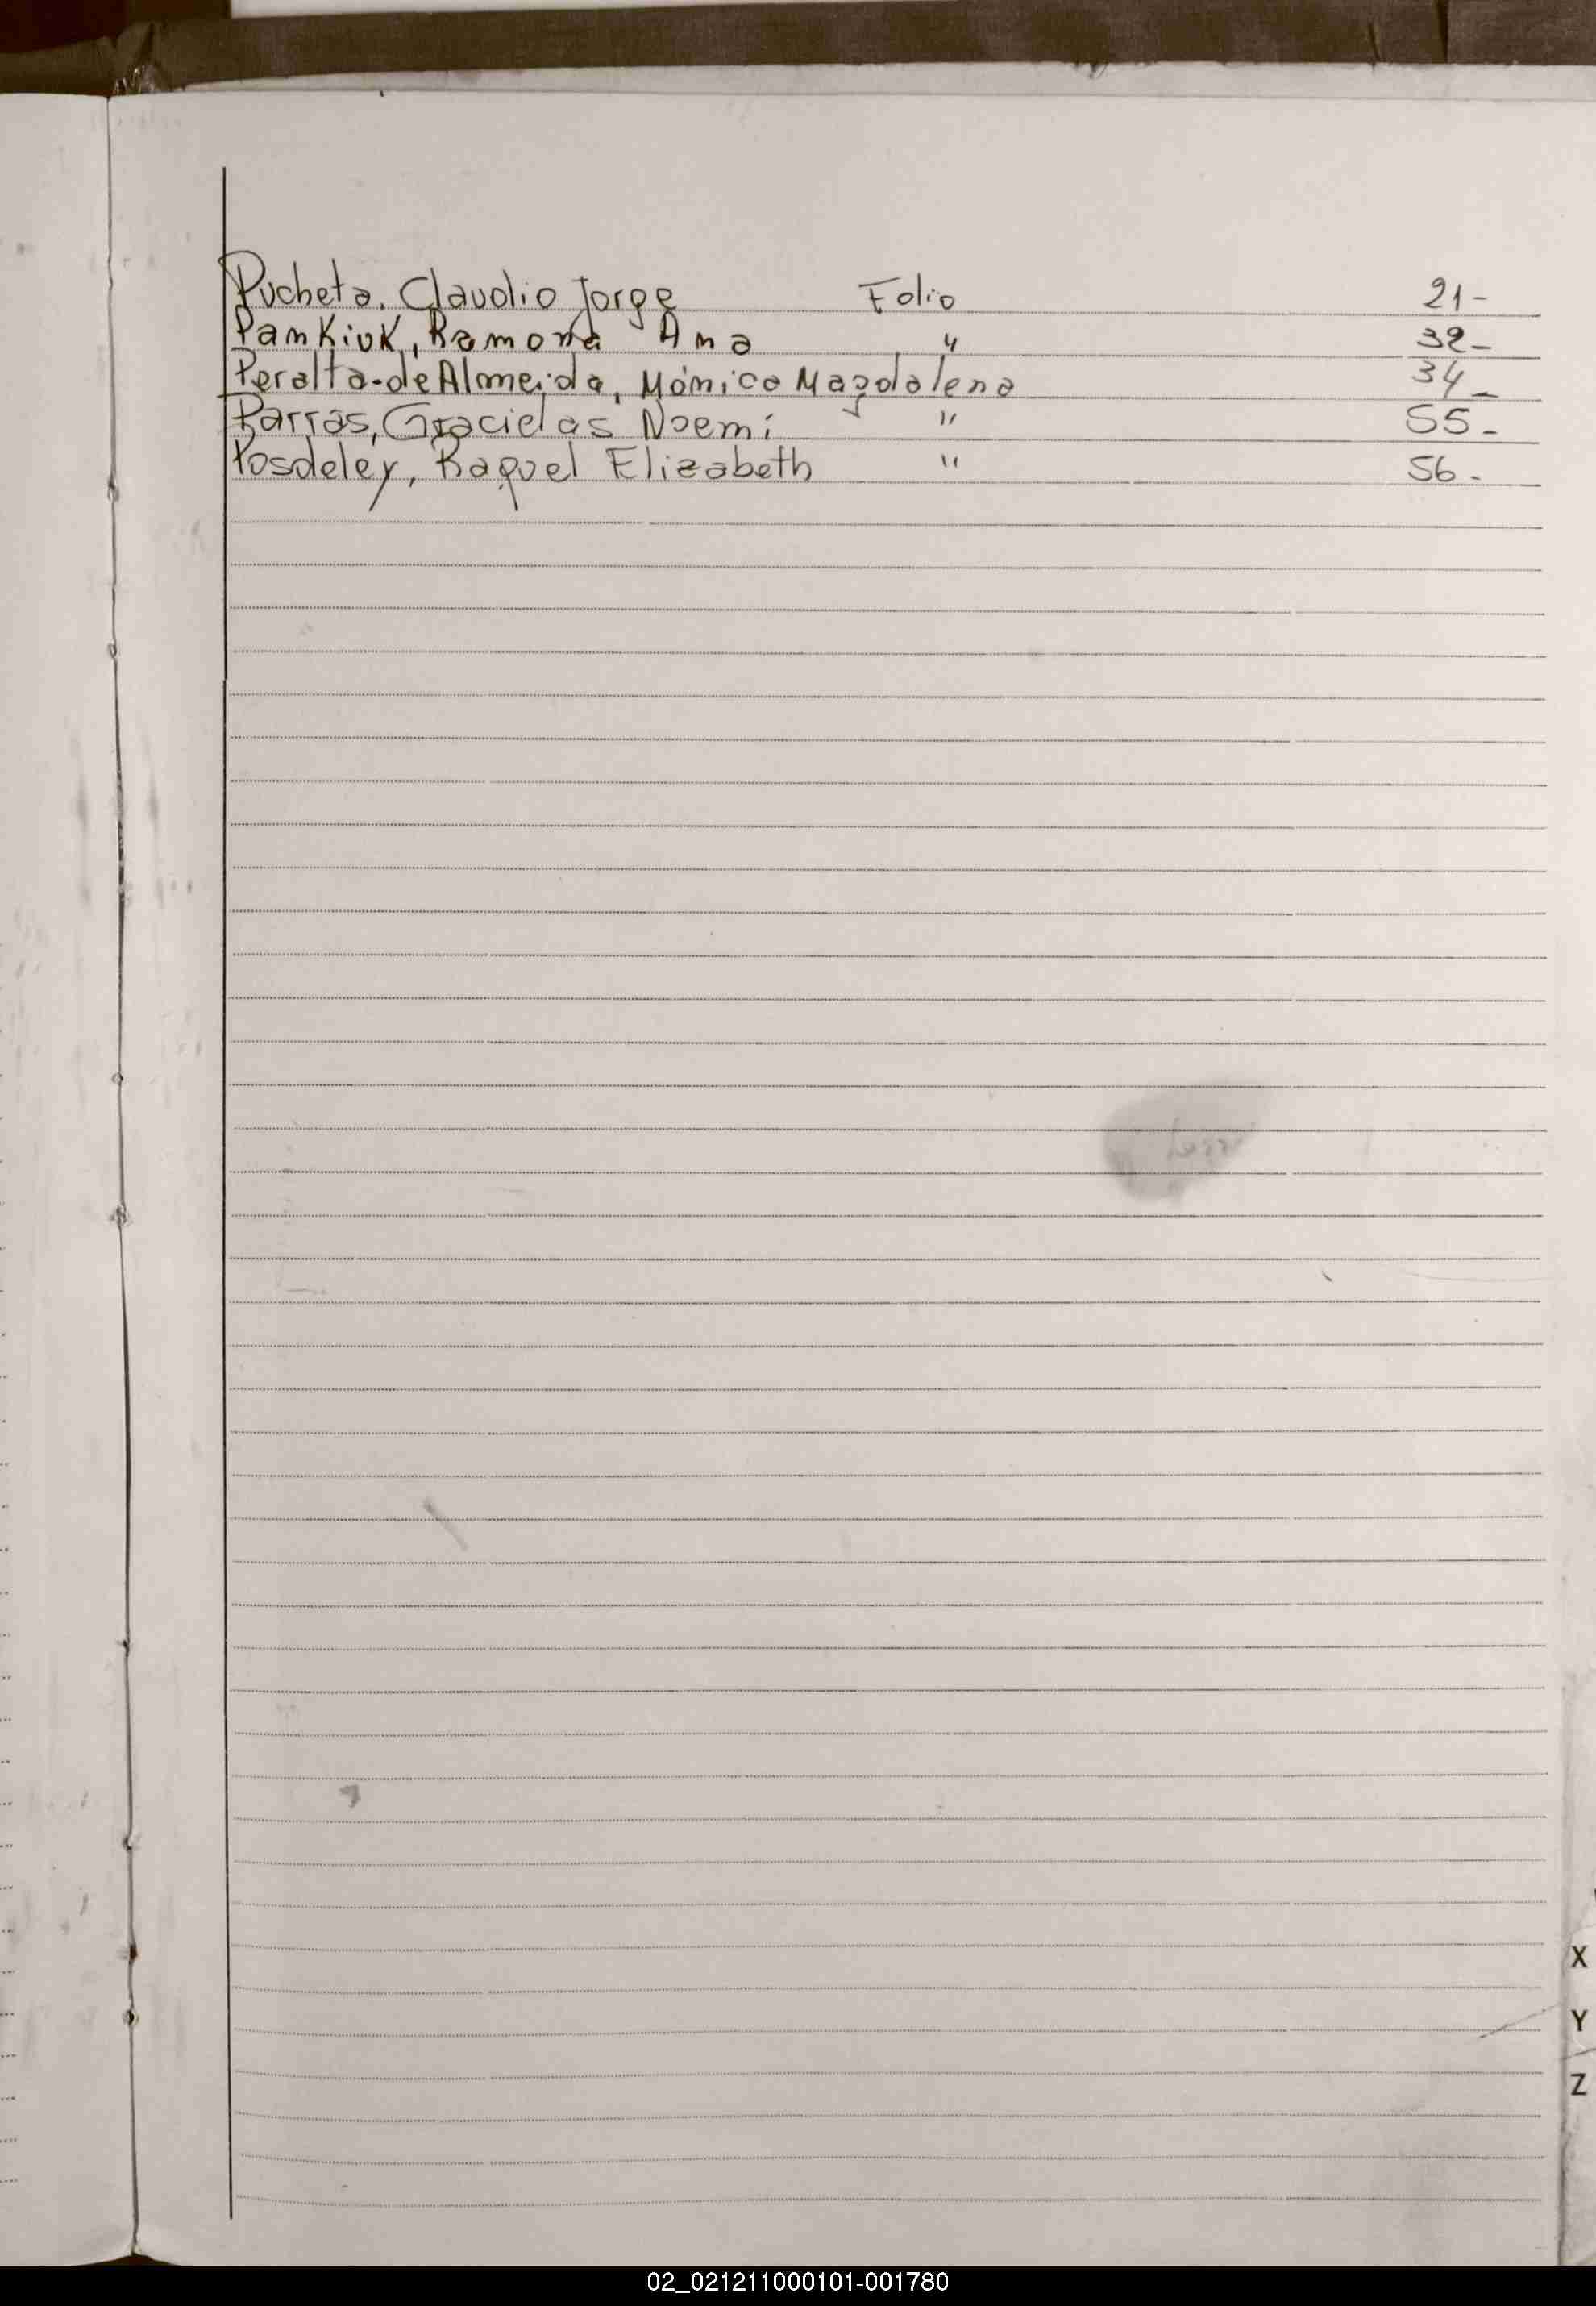 Pucheta, Claudio Jorge Folio 21-
Pamkiuk, Ramona Ana " 32-
Peralta-de Almeida, Mónica Magdalena 34-
Parras, Gracielas Noemí " 55-
Posdeley, Raquel Elizabeth " 56-
X
Y
Z
02_021211000101-001780